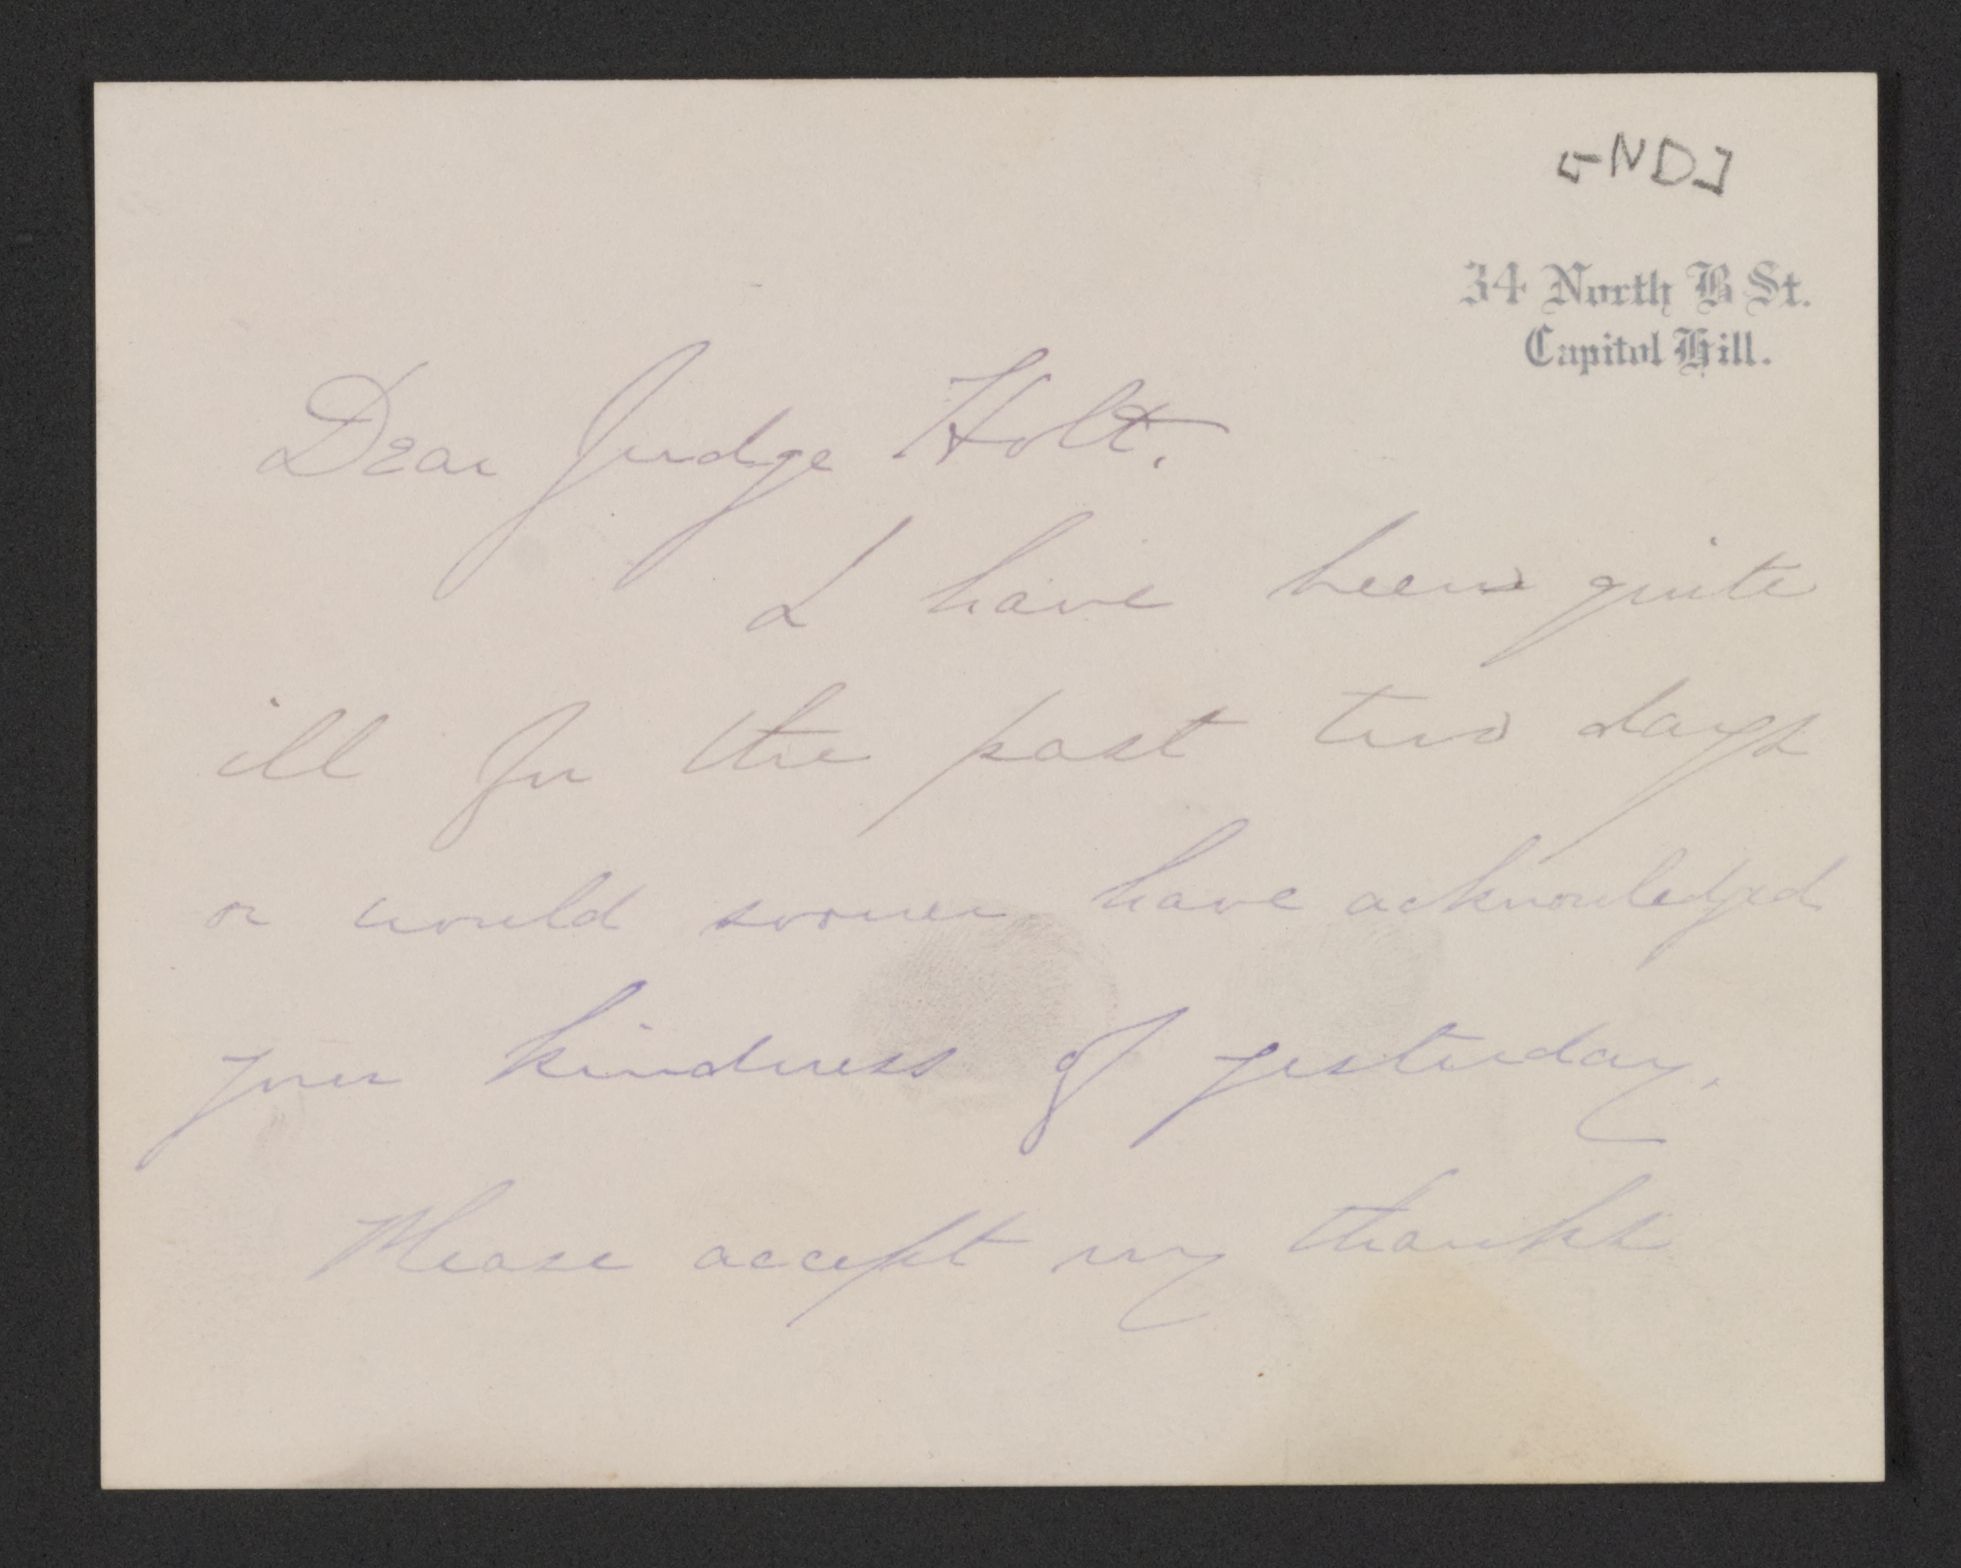 [ND]
34 North B St.
Capitol Hill.
Dear Judge Holt.
I have been quite
ill for the past two days
or would sooner have acknowledged
your kindness of yesterday.
Please accept my thanks